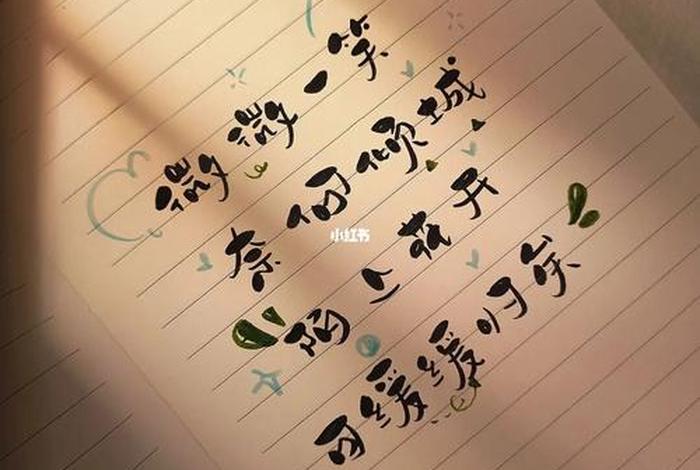 微微一笑
奈何倾城
陌上花开
可缓缓归矣
小红书